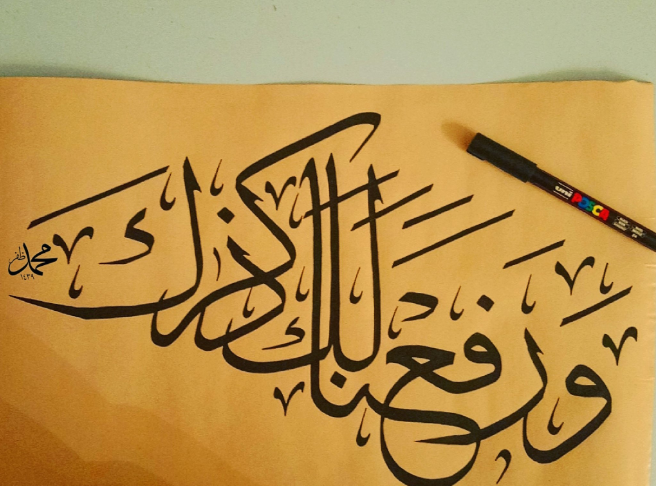 ورفعنا لك ذكرك
محمد ظفر
١٤٣٩
uni
POSCA